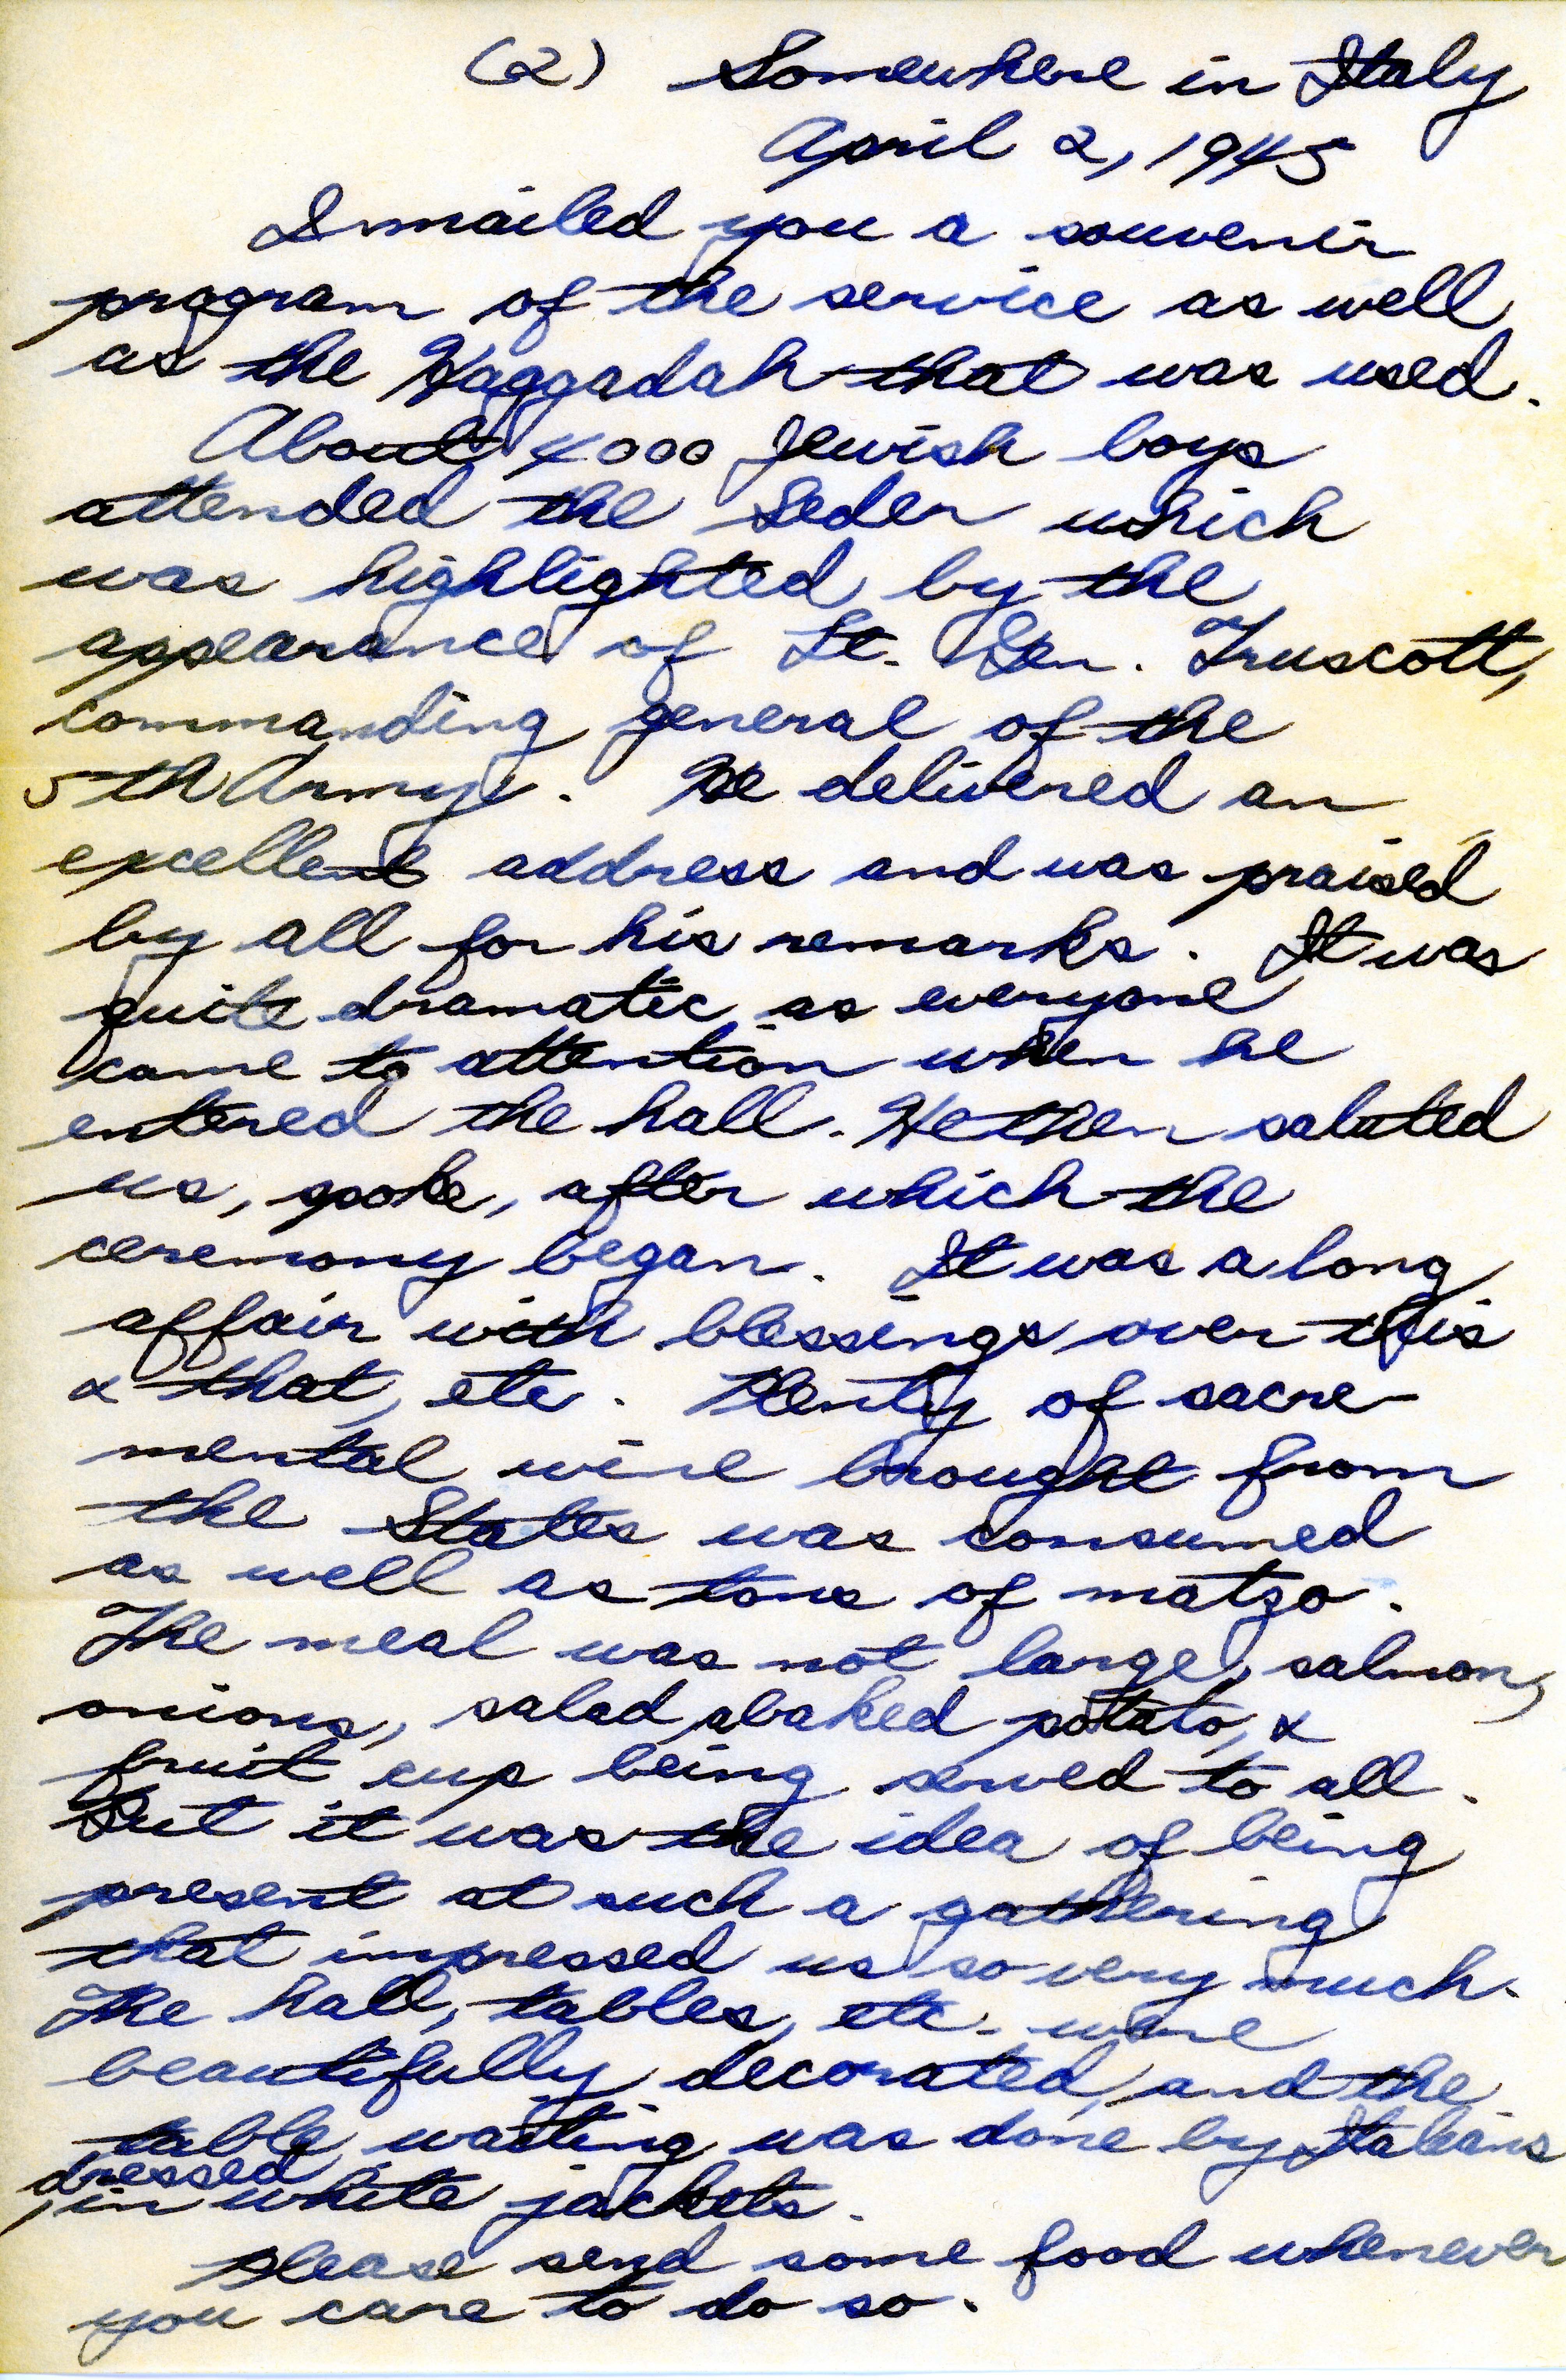 (2) Somewhere in Italy
April 2, 1945
I mailed you a souvenir
program of the service as well
as the Haggadah that was used.
About 4000 Jewish boys
attended the Seder which
was highlighted by the
appearance of Lt. Gen. Truscott,
commanding general of the
5th Army. He delivered an
excellent address and was praised
by all for his remarks. It was
quite dramatic as everyone
came to attention when he
entered the hall. He then saluted
us, spoke, after which the
ceremony began. It was a long
affair with blessings over this
& that, etc. Plenty of sacre-
mental wine brought from
the States was consumed
as well as tons of matzo.
The meal was not large, salmon,
onions, salad, baked potato, &
fruit cup being served to all.
But it was the idea of being
present at such a gathering
that impressed us so very much.
The hall, tables, etc. were
beautifully decorated, and the
table waiting was done by Italians
dressed
in white jackets.
Please send some food whenever
you care to do so.